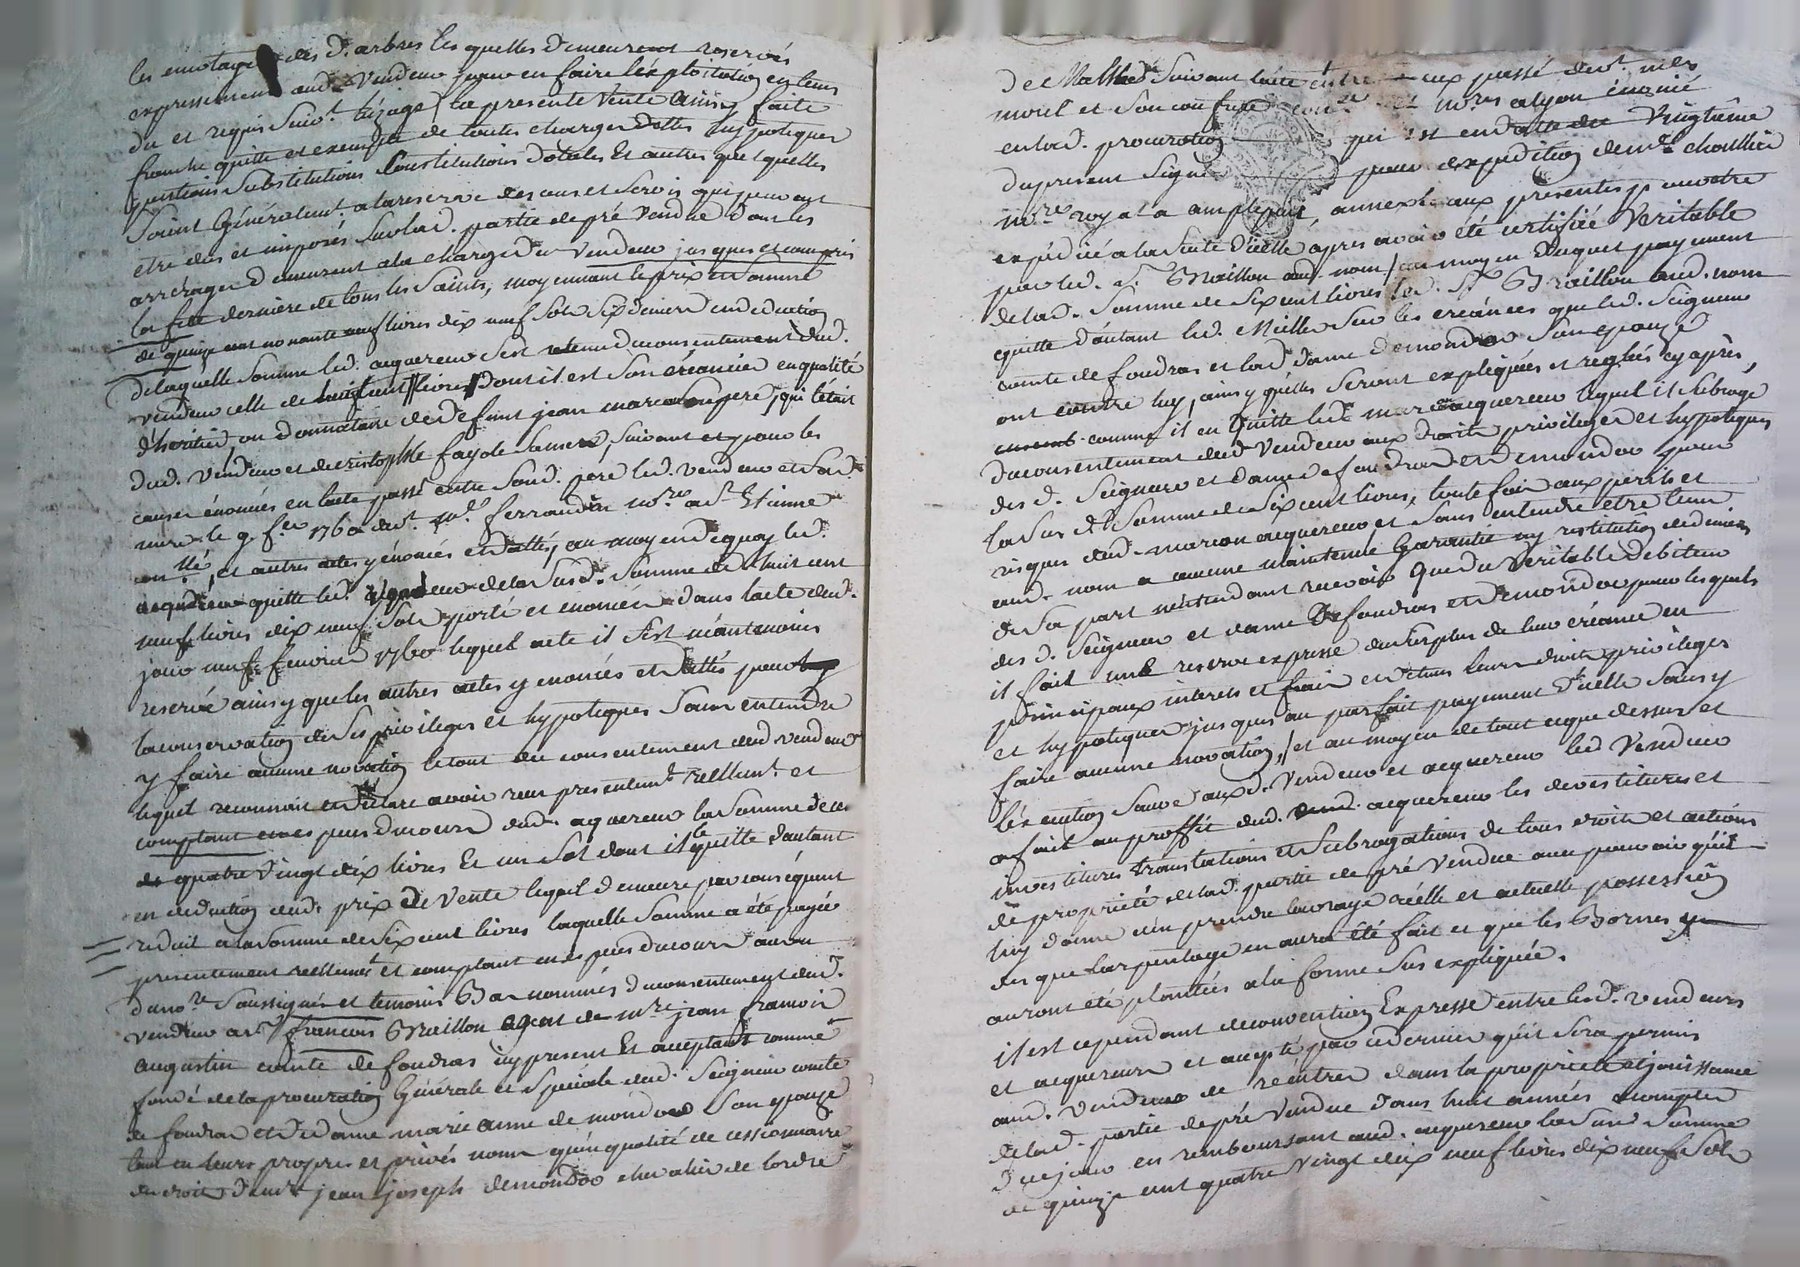 les emotages des d. arbres lesquelles demeurent reservés
expressement aud. Vendeur pour en faire léxploitation en tems
du et requis suiv.t lúzage / la presente Vente ainsy faite
franche quitte et exempte de toutes charges dettes hypoteques
pentions substitutions Constitutions dotales Et autres quelquelles
soient Généralem.t a la reserve des cens et servis qui peuvent
etre dus et imposés sur lad. partie de pré Vendue dont les
arrérages demeurent a la charge du Vendeur jusques et compris
la fete derniere de tous les Saints, moyennant le prix et somme
de quinze cent nonante neuf livres dix neuf sols six deniers en deduction
de laquelle somme led. acquereur sest retenu du consentement dud.
vendeur celle de huit cent livres dont il est son créancier en qualité
dhéritier ou donnataire de defunt jean marcon son pere, qui létait
dud. Vendeur et de cristophle fayole sa mere, suivant et pour les
causes énoncées en lacte passé entre sond. pere led. vendeur et sad.
mere le 9. f.er 1760 dev.t m.e ferrandin no.re a S.t Etienne
et autres actes y énoncés et dattés, au moyen de quoy led.
acquéreur quitte led. vendeur de la susd. somme de huit cent
neuf livres dix neuf sols porté et énoncée dans lacte dud.
jour neuf fevrier 1760 lequel acte il sest néantmoins
reservé ainsy que les autres actes y énoncés et dattés pour
la conservation de ses privileges et hypoteques sans entendre
y faire aucune novation le tout du consentement dud vendeur
lequel reconnoit et déclare avoir reçu presentem.t réellem.t et
comptant en especes du cours dud. aquereur la somme de
quatre Vingt dix livres Et un sol dont il le quitte dautant
en deduction dud. prix de Vente lequel demeure par conséquent
reduit a la somme de six cent livres laquelle somme a été payée
presentement réellement et comptant en especes du cours au vu
du no.re soussigné et temoins Bas nommés du consentement dud.
vendeur a s.r françois Braillon agent de m.re jean françois
augustin comte de foudras icy present Et acceptant comme
fondé de la procuration Générale et speciale dud. Seigneur comte
de foudras et de dame marie anne de mondor son epouze
tant en leurs propres et privés noms qu'en qualité de cessionnaire
des droits de m.re jean joseph demondor chevalier de lordre
de Malthe suivant lacte entre eux passé dev.t m.es
morel et son confrere no.res a lyon énoncé
en lad. procuration qui est en datte du Vingtième
du present signé pour expédition de m.e chaillié
no.re royal a amplepuis, annexée aux presentes pour etre
expédiée a la suite dicelle apres avoir été certifiée Veritable
par led. s.r Braillon aud. nom / au moyen duquel payement
de lad. somme de six cent livres led. s.r Braillon aud. nom
quitte d'autant led. Mielle sur les créances que led. Seigneur
comte de foudras et lad. dame demondor son epouze
ont contre luy, ainsy quelles seront expliquées et reglées cy après,
comme il en quitte led. marcon acquereur lequel il subroge
du consentement dud Vendeur aux droits privileges et hypoteques
des d. Seigneur et dame de foudras et demondor pour
la susd. somme de six cent livres, toute fois aux perils et
risques dud. marcon acquereur et sans entendre etre tenu
aud. nom a aucune maintenue Garantie ny restitution de deniers
de sa part nentendant recevoir que du Veritable debiteur
des d. Seigneur et dame De foudras et demondor pour lesquels
il fait une reserve expresse du surplus de leur créance en
principaux interets et frais et de tous leurs droits privileges
et hypoteques jusques au parfait payement dicelle sans y
faire aucune novation, / et au moyen de tout ce que dessus et
lexecution sauve aux d. Vendeur et acquereur led Vendeur
a fait au proffit dud. acquereur les devestitures et
investitures translations et subrogations de tous droits et actions
de propriété de lad. partie de pré Vendue avec pouvoir qu'il
luy donne d'en prendre la vraye réelle et actuelle possession
des que larpentage en aura été fait et que les Bornes y
auront été plantées a la forme sus expliquée.
il est cependant de convention Expresse entre lesd. vendeurs
et acquereurs et accepté par ce dernier qu'il sera permis
aud. Vendeur de réntrer dans la proprieté et jouissance
de lad. partie de pré Vendue dans huit années a compter
de ce jour en remboursant aud. acquereur la susd Somme
de quinze cent quatre vingt dix neuf livres dix neuf sols